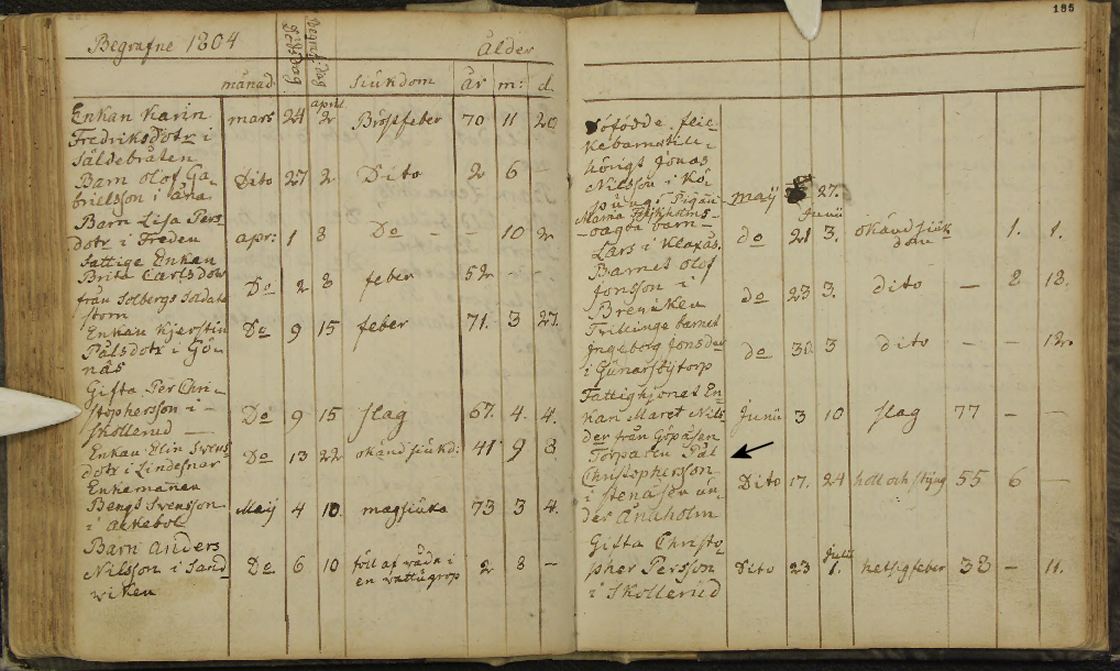 185
Begrafne 1804
Ålder
månad
Siukdom
år
m:
d.
Enkan Karin
Fredriksdotr i
Säldebråten
mars 24 april 2 Bröstfeber 70 11 20
Barn Olof Ga-
brielsson i Åna
Dito 27 2 Dito 2 6 –
Barn Lisa Pers-
dotr i Treden
apr: 1 8 Do – 10 2
Fattige Enkan
Brita Carlsdotr
från Solbergs Soldats
torn
Do 2 8 feber 52 – –
Enkan Kjerstin
Pålsdotr i Gö-
näs
Do 9 15 feber 71. 3 27.
Gifta Per Chri-
stophersson i –
Skollerud –
Do 9 15 slag 67. 4. 4.
Enkan Elin Svens-
dotr i Lindesnar
Do 13 22 okänd siukd: 41 9 8.
Enkemannen
Bengt Svensson
i
Maij 4 10. magsiuka 73 3 4.
Barn Anders
Nilsson i Sand
wiken
Do 6 10 föll af våda i
en vattugrop 2 8 –
flic-
kebarnet
hörigt Jonas
Nilsson i
maij 27.
Pigan
Maria
barn
Lars i
do 21 Junii 3. okänd siuk
dom 1. 1.
Barnet Olof
Jonsson i
Breniken
do 23 3. dito – 8 18.
Trillinge barnet
Ingeborg Jonsdr
i Gunarsbytorp
do 30. 3 dito – – 12.
Fattighjonet En-
kan Maret Nils-
der från
Junii 3 10 slag 77 – –
Torparen Pål
Christophersson
i un-
der Anaholm
Dito 17. 24 håll och styng 55 6 –
Gifta Christo-
pher Persson
i Skollerud
Dito 23 Julii 1. hetsigfeber 38 – 11.